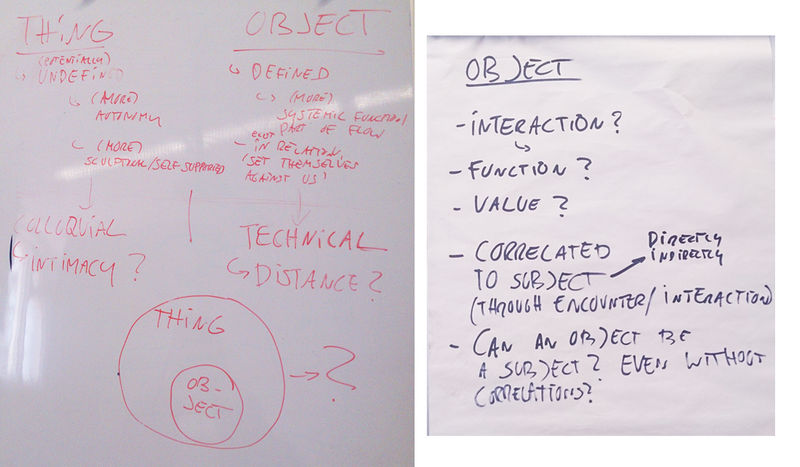 THING
(POTENTIALLY)
↳ UNDEFINED
↳ (MORE)
AUTONOMY
↳ (MORE)
SCULPTURAL/SELF SUPPORTED
COLLOQUIAL
↳ INTIMACY?
OBJECT
↳ DEFINED
↳ (MORE)
SYSTEMIC FUNCTION/
PART OF FLOW
- EXIST IN RELATION,
(SET THEMSELVES
AGAINST US)
TECHNICAL
↳ DISTANCE?
THING
OB-
JECT
→ ?
OBJECT
- INTERACTION?
↳
- FUNCTION?
- VALUE?
- CORRELATED
TO SUBJECT → DIRECTLY
INDIRECTLY
(THROUGH ENCOUNTER/INTERACTION)
- CAN AN OBJECT BE
A SUBJECT? EVEN WITHOUT
CORRELATIONS?